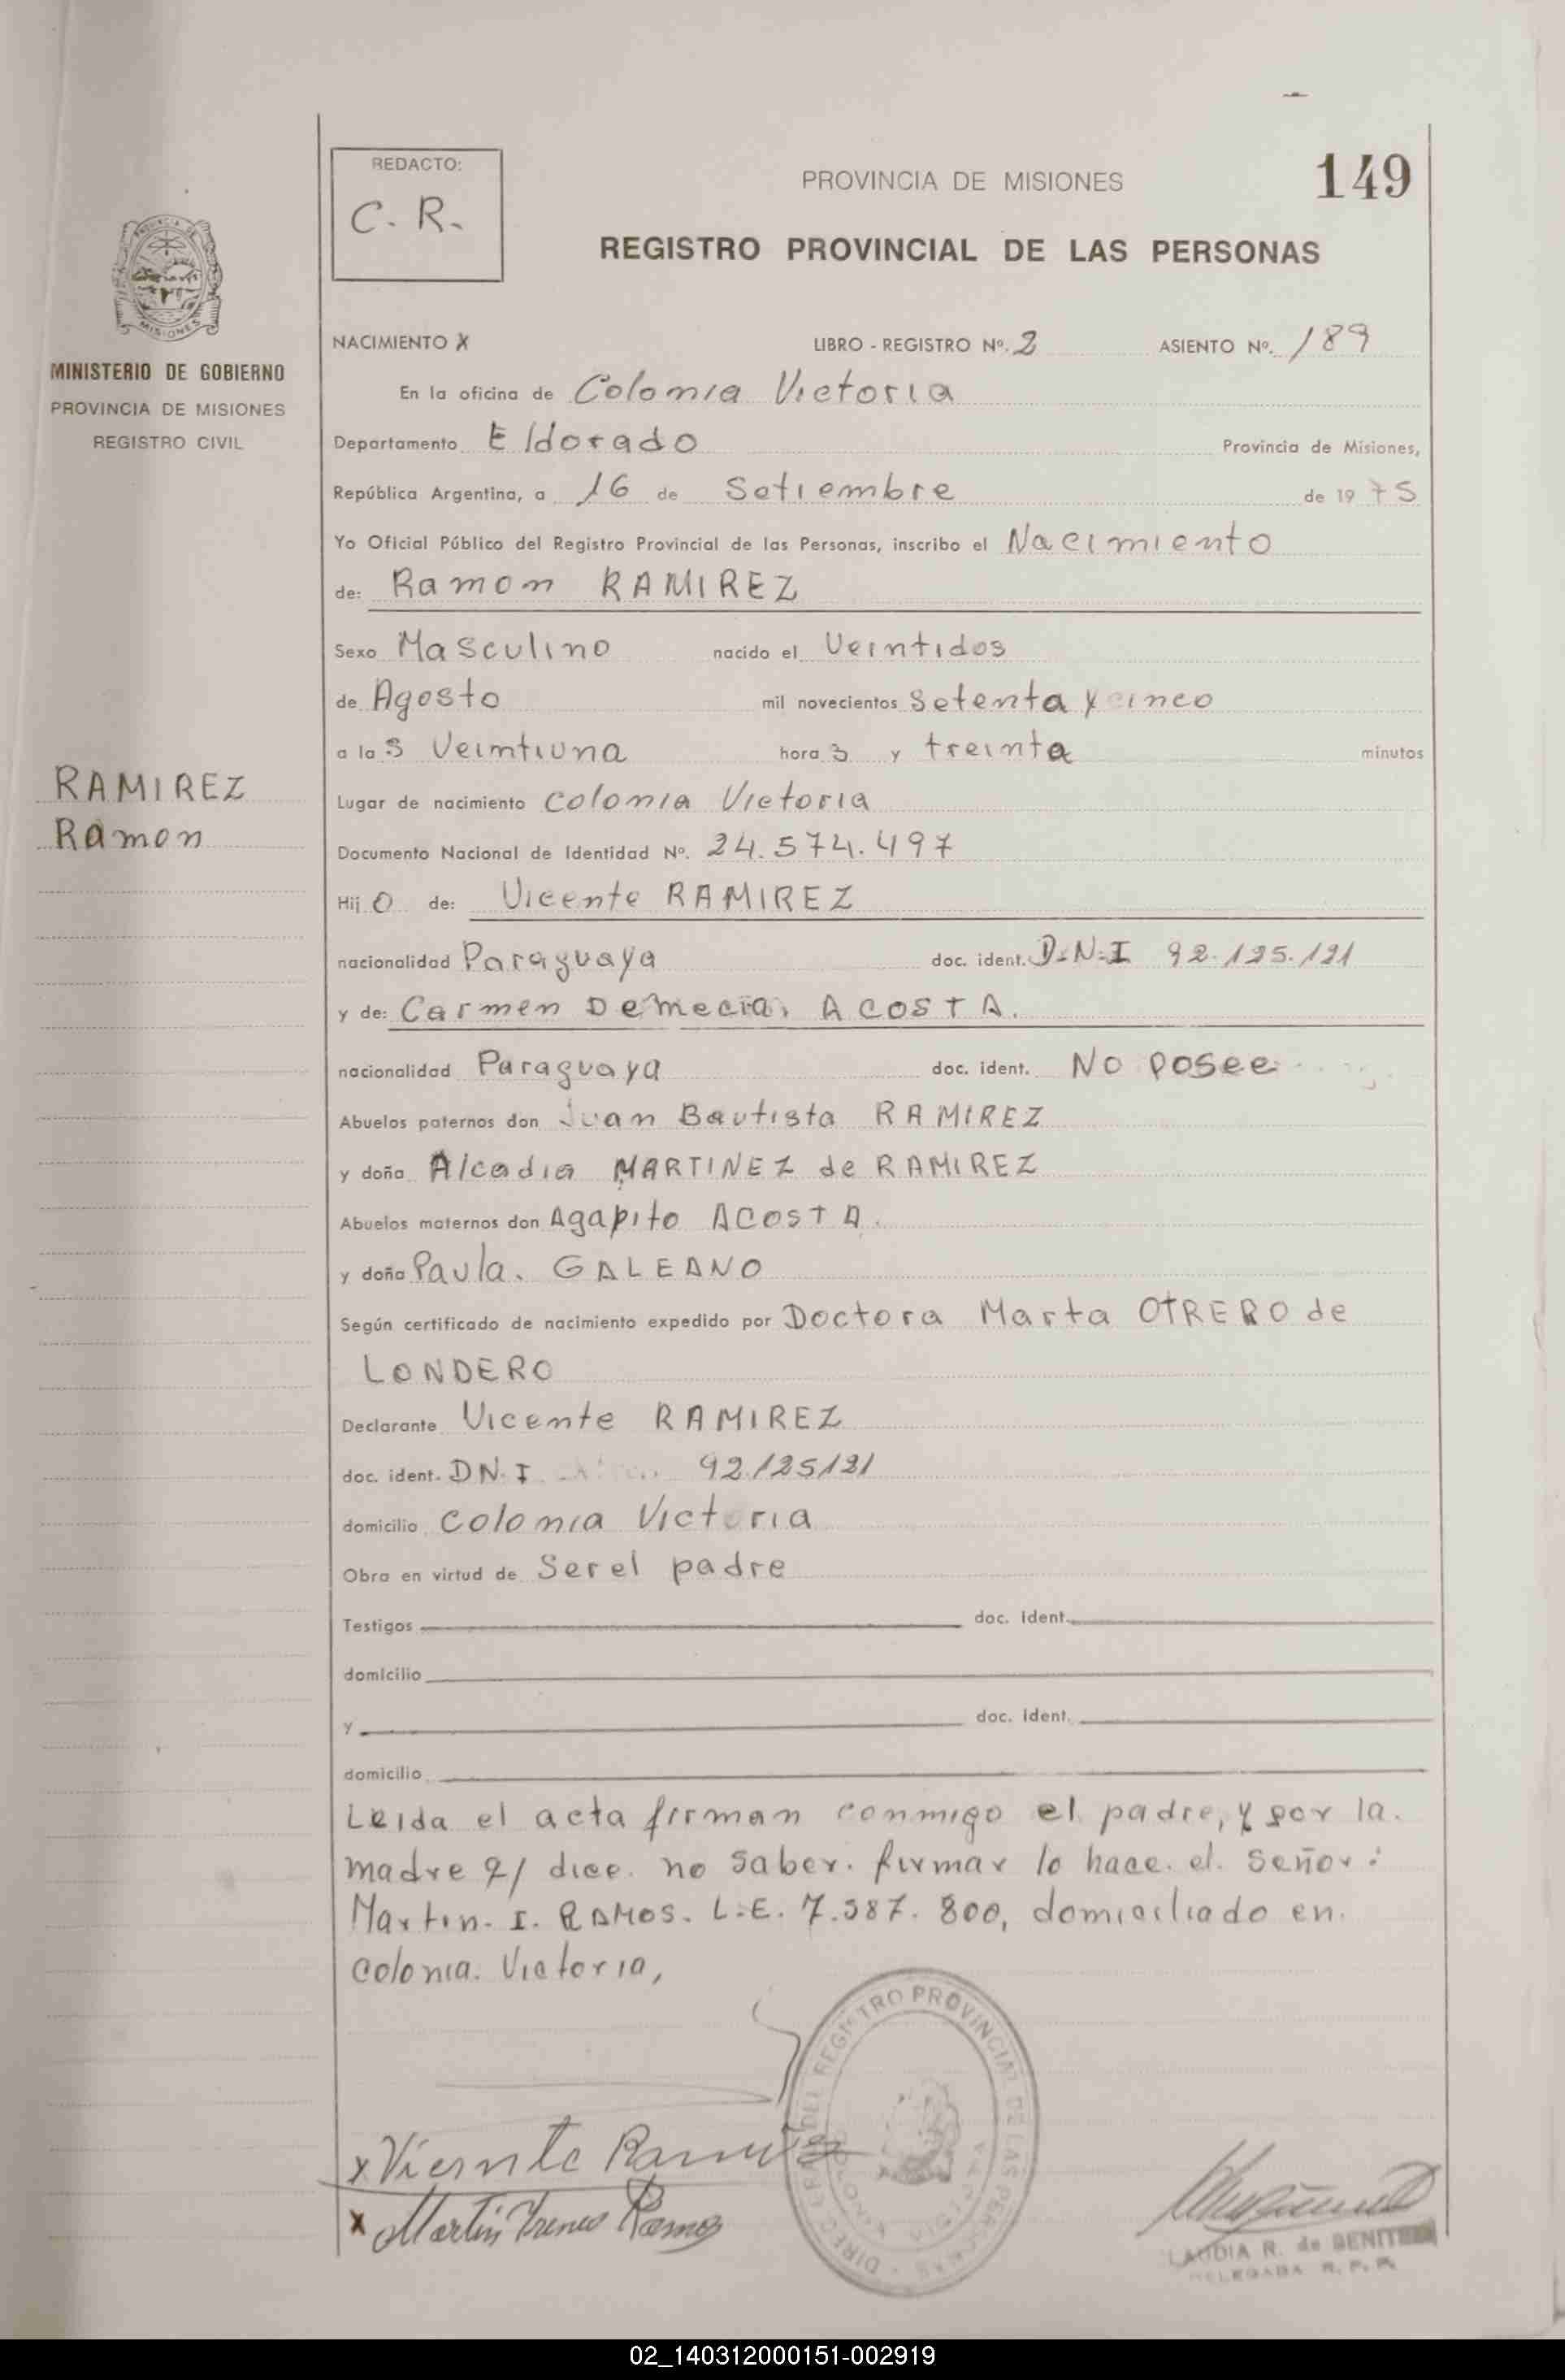 REDACTO:
C. R.
PROVINCIA DE MISIONES
149
REGISTRO PROVINCIAL DE LAS PERSONAS
MISIONES
MINISTERIO DE GOBIERNO
PROVINCIA DE MISIONES
REGISTRO CIVIL
NACIMIENTO X LIBRO - REGISTRO Nº. 2 ASIENTO Nº. 189
En la oficina de Colonia Victoria
Departamento Eldorado Provincia de Misiones,
República Argentina, a 16 de Setiembre de 1975
Yo Oficial Público del Registro Provincial de las Personas, inscribo el Nacimiento
de: Ramon RAMIREZ
Sexo Masculino nacido el Veintidos
de Agosto mil novecientos Setenta y cinco
a las Veintiuna hora s y treinta minutos
RAMIREZ
Ramon
Lugar de nacimiento Colonia Victoria
Documento Nacional de Identidad Nº. 24.574.497
Hijo de: Vicente RAMIREZ
nacionalidad Paraguaya doc. ident. D.N.I 92.125.121
y de: Carmen Demecia ACOSTA.
nacionalidad Paraguaya doc. ident. No posee
Abuelos paternos don Juan Bautista RAMIREZ
y doña Alcadia MARTINEZ de RAMIREZ
Abuelos maternos don Agapito ACOSTA.
y doña Paula. GALEANO
Según certificado de nacimiento expedido por Doctora Marta OTRERO de
LONDERO
Declarante Vicente RAMIREZ
doc. ident. DN.I 92125121
domicilio Colonia Victoria
Obra en virtud de Ser el padre
Testigos doc. ident.
domicilio
y doc. ident.
domicilio
Leida el acta firman conmigo el padre, y por la.
madre q/ dice. no saber. firmar lo hace. el. Señor:
Martin. I. RAMOS. L.E. 7.587.800, domiciliado en.
Colonia. Victoria,
DEL REGISTRO PROVINCIAL DE LAS PERSONAS
x Vicente Ramirez
x Martin Ireneo Ramos
LAUDIA R. de BENITEZ
DELEGADA R. P. P.
02_140312000151-002919